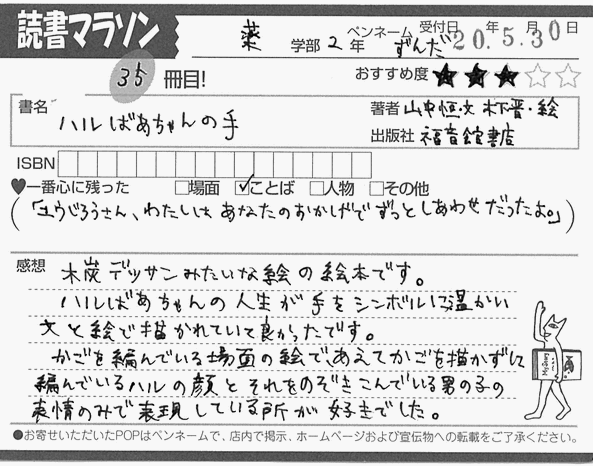 読書マラソン
薬 学部 2 年 ペンネーム ずんだ 受付日 20.年 5.月 30日
35 冊目! おすすめ度 ★★★☆☆
書名 ハルばあちゃんの手
著者 山中恒・文 木下晋・絵
出版社 福音館書店
ISBN
♥一番心に残った □場面 ☑ことば □人物 □その他
(「ユウじろうさん、わたしは、あなたのおかげでずっとしあわせだったよ。」)
感想 木炭デッサンみたいな絵の絵本です。
ハルばあちゃんの人生が手をシンボルに温かい
文と絵で描かれていて良かったです。
かごを編んでいる場面の絵で、あえてかごを描かずに
編んでいるハルの顔とそれをのぞきこんでいる男の子の
表情のみで表現している所が好きでした。
●お寄せいただいたPOPはペンネームで、店内で掲示、ホームページおよび宣伝物への転載をご了承ください。